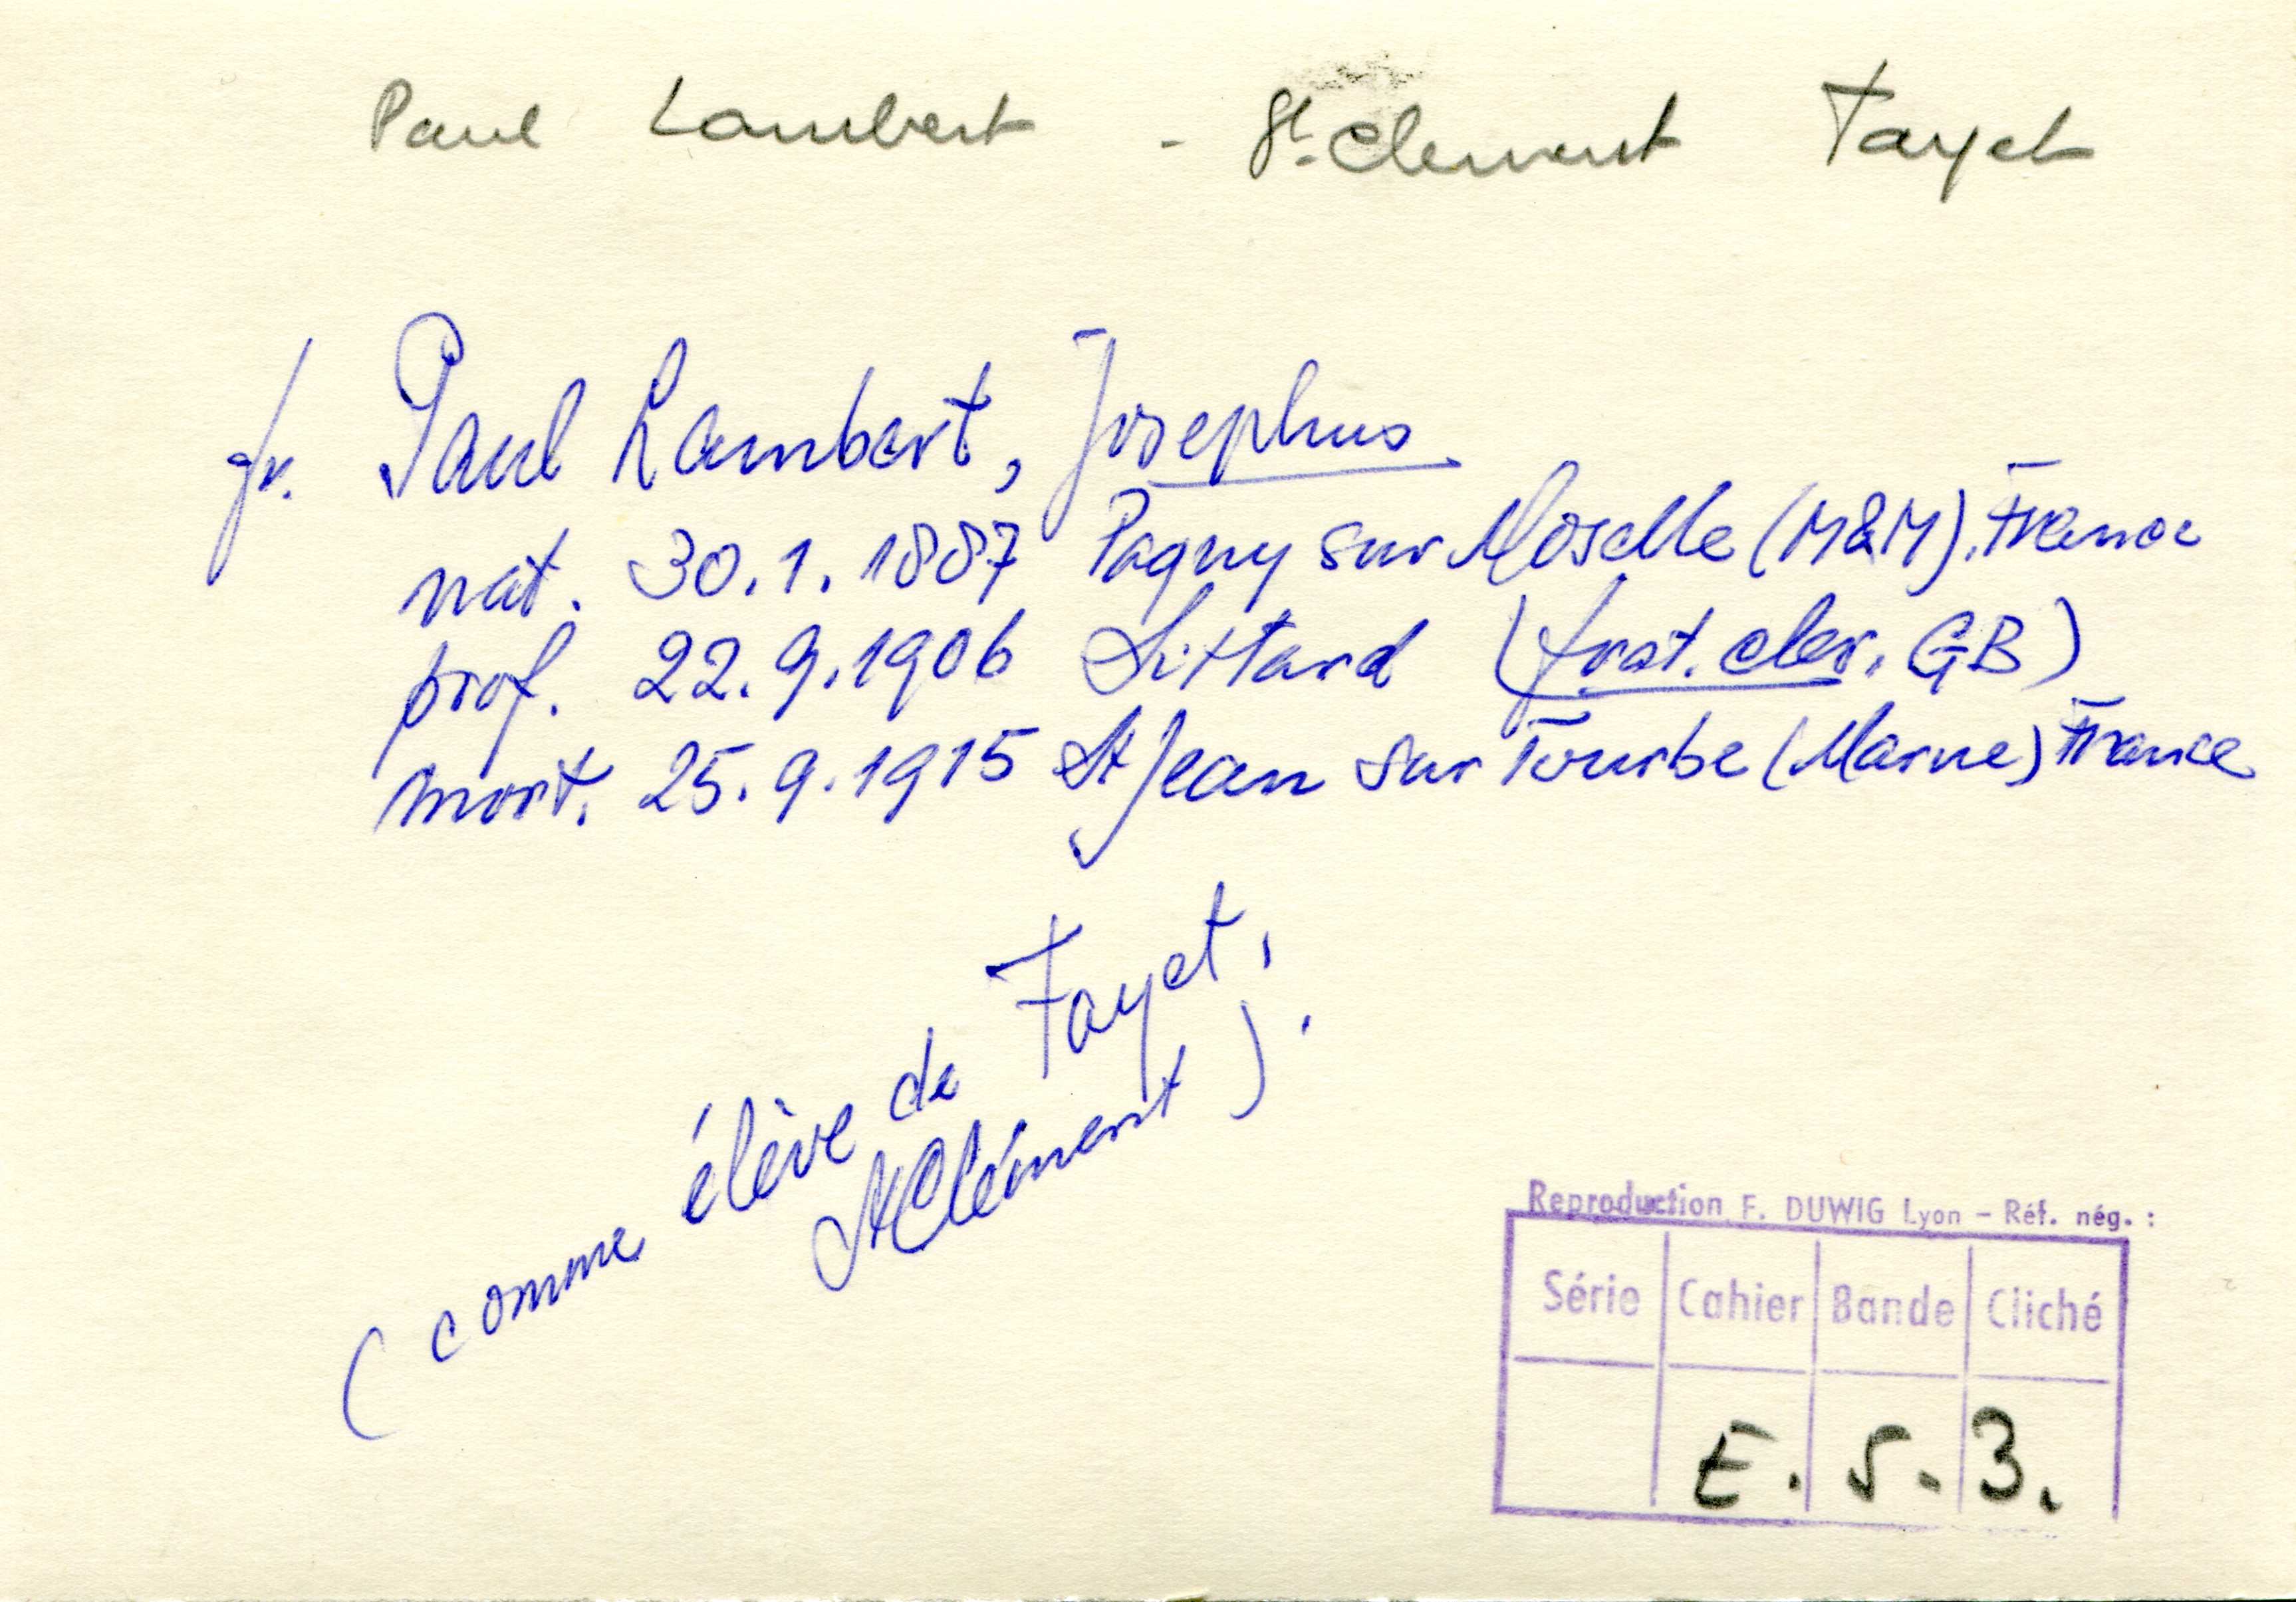 Paul Lambert - St. Clement Fayet
fr. Paul Lambert, Josephus
nat. 30.1.1887 Pagny sur Moselle (M&M), France
prof. 22.9.1906 Sittard (frat. cler. GB)
mort. 25.9.1915 St Jean sur Tourbe (Marne) France
(comme élève de Fayet,
St Clément).
Reproduction F. DUWIG Lyon - Réf. nég. :
Série Cahier Bande Cliché
E. 5. 3.